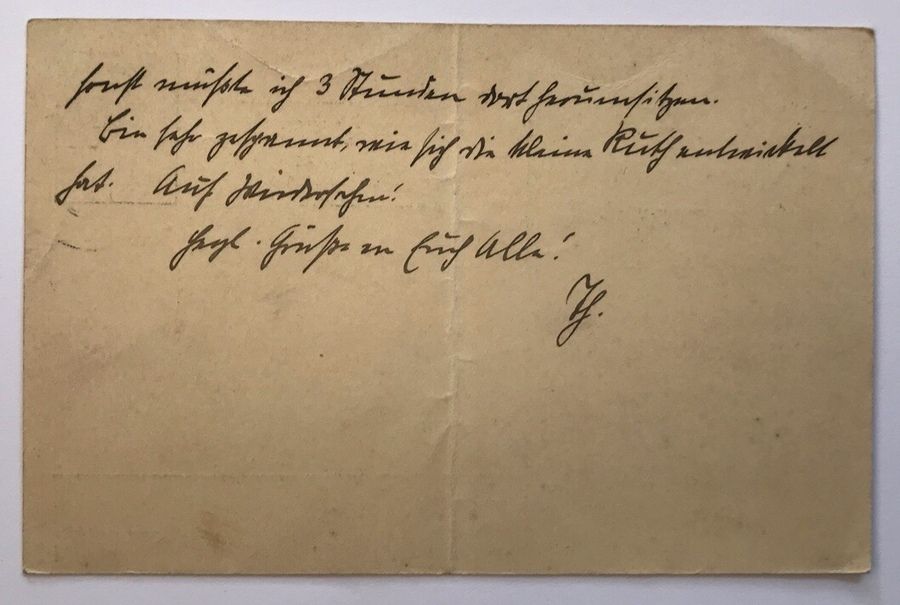 sonst müßte ich 3 Stunden dort herumsitzen.
Bin sehr gespannt, wie sich die kleine Ruth entwickelt
hat. Auf Wiedersehen!
Herzl. Grüße an Euch Alle!
Th.